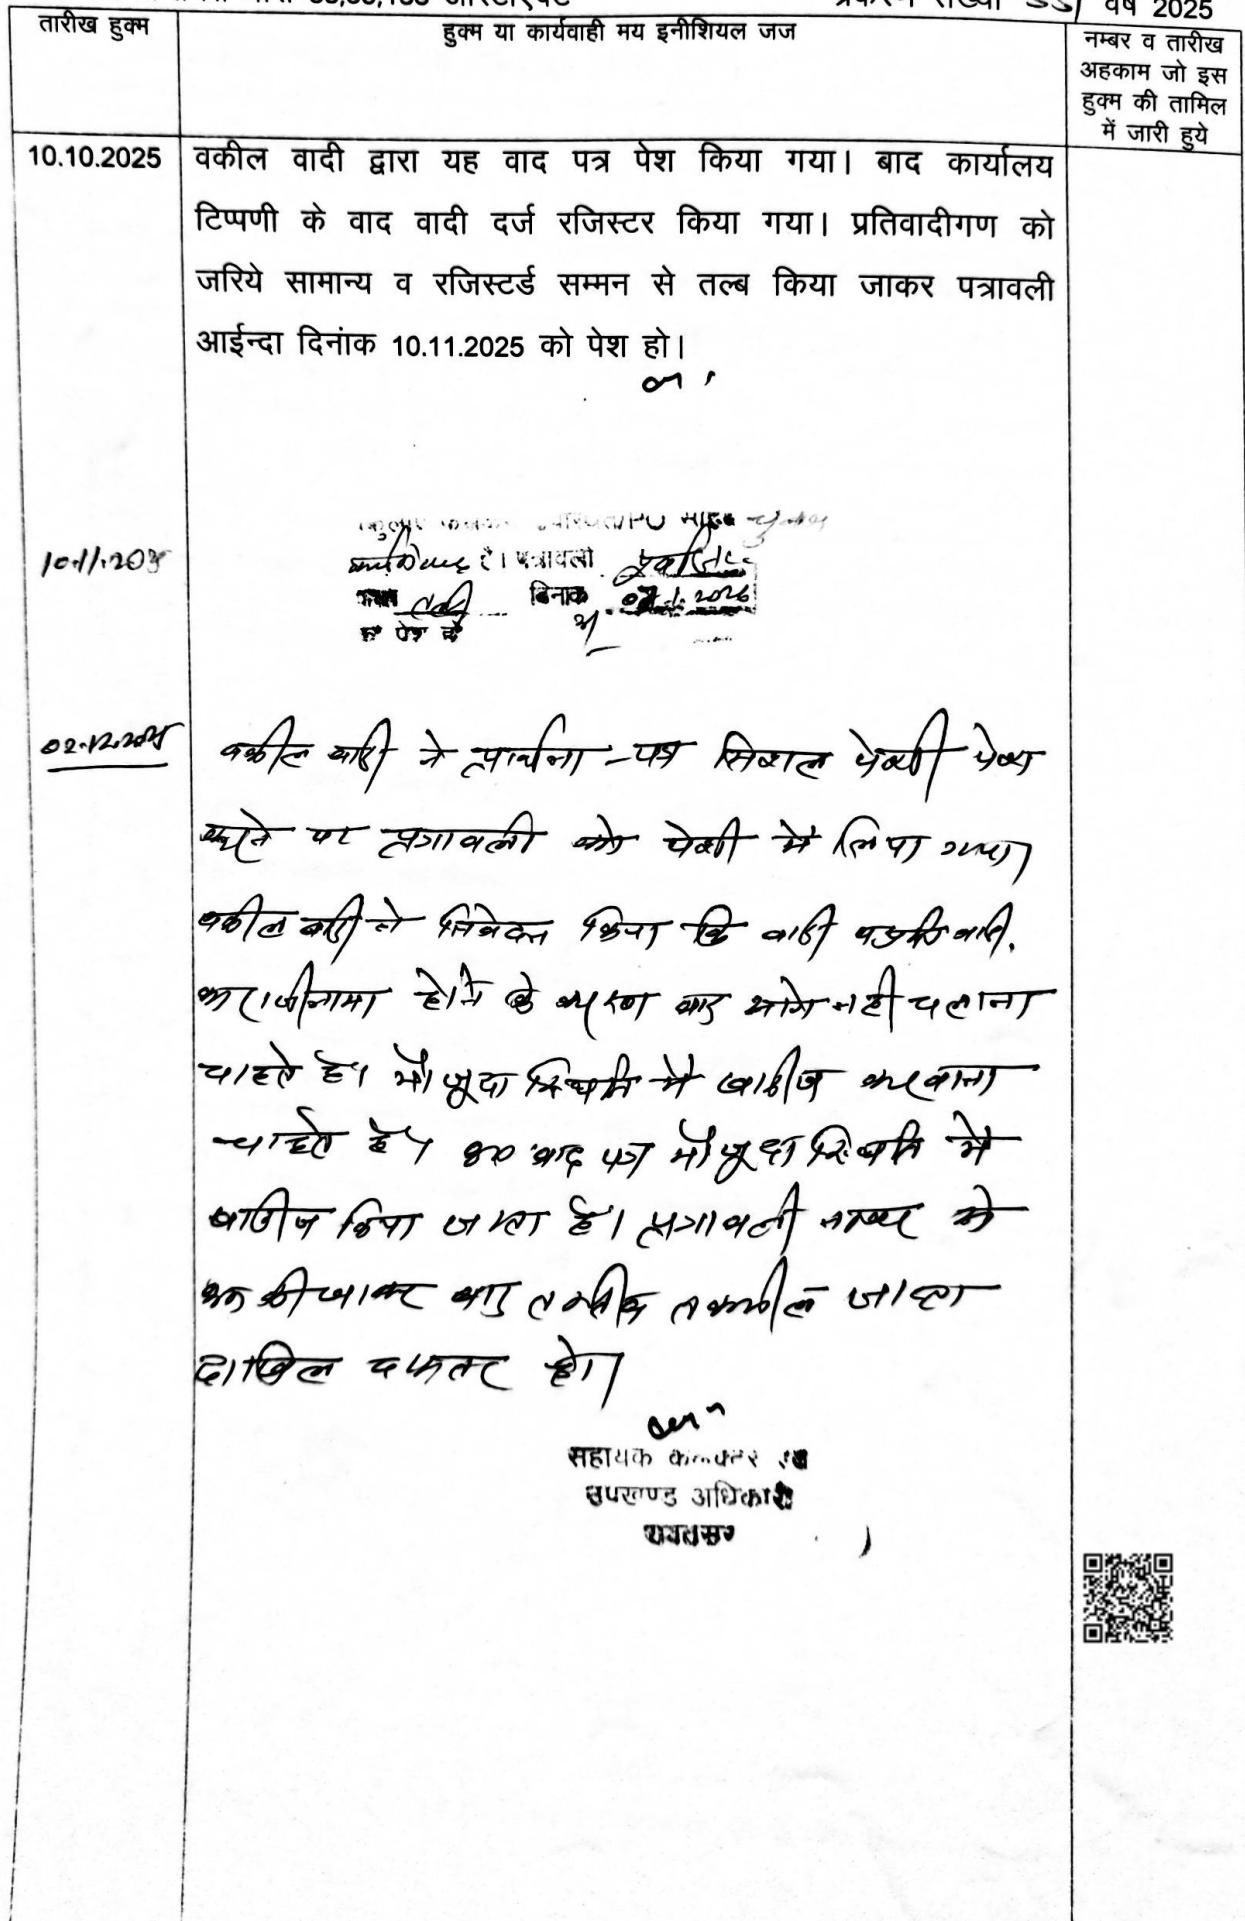 वर्ष 2025
तारीख हुक्म
हुक्म या कार्यवाही मय इनीशियल जज
नम्बर व तारीख
अहकाम जो इस
हुक्म की तामिल
में जारी हुये
10.10.2025
वकील वादी द्वारा यह वाद पत्र पेश किया गया। बाद कार्यालय
टिप्पणी के वाद वादी दर्ज रजिस्टर किया गया। प्रतिवादीगण को
जरिये सामान्य व रजिस्टर्ड सम्मन से तल्ब किया जाकर पत्रावली
आईन्दा दिनांक 10.11.2025 को पेश हो।
है। पत्रावली
दिनांक 2026
पेश हो
02.12.2025
वकील वादी ने प्रार्थना-पत्र मिशल पेशी पेश
करने पर पत्रावली को पेशी में लिया गया।
वकील वादी ने निवेदन किया कि वादी
राजीनामा होने के कारण वाद आगे नहीं चलाना
चाहते है। मौजूदा स्थिति में खारीज करवाना
चाहते है। वाद पत्र मौजूदा स्थिति में
खारीज किया जाता है। पत्रावली नम्बर से
कम की जाकर बाद तकमील
दाखिल दफतर हो।
सहायक कलक्टर एवं
उपखण्ड अधिकारी
रावतसर